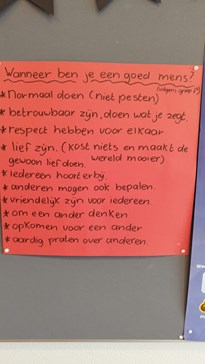 Wanneer ben je een goed mens?
(volgens groep 8)
*Normaal doen (niet pesten)
*betrouwbaar zijn, doen wat je zegt.
*respect hebben voor elkaar
*lief zijn. (kost niets en maakt de
gewoon lief doen. wereld mooier)
*iedereen hoort erbij.
*anderen mogen ook bepalen.
*vriendelijk zijn voor iedereen
*om een ander denken
*opkomen voor een ander
*aardig praten over anderen